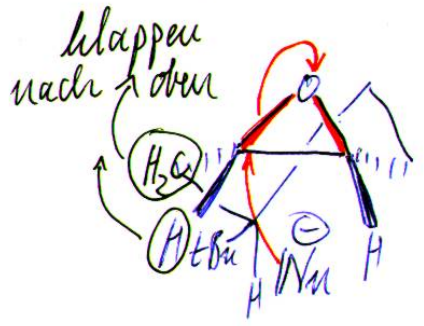 klappen
nach oben
O
H₂C
H tBu
⊖
H |Nu H